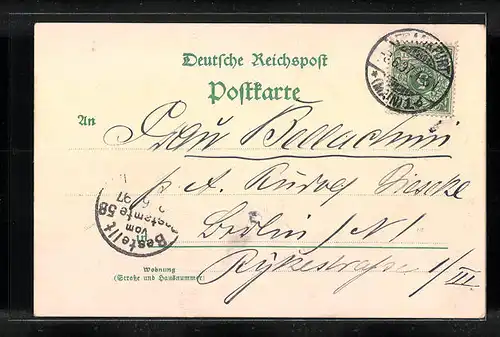 Deutsche Reichspost
Postkarte
An
Frau Bellachini
p. A. Rudolf Giesecke
in Berlin N
Rykestrasse 1/III.
Wohnung
(Straße und Hausnummer)
Bestellt
vom
Postamte 58
6.97